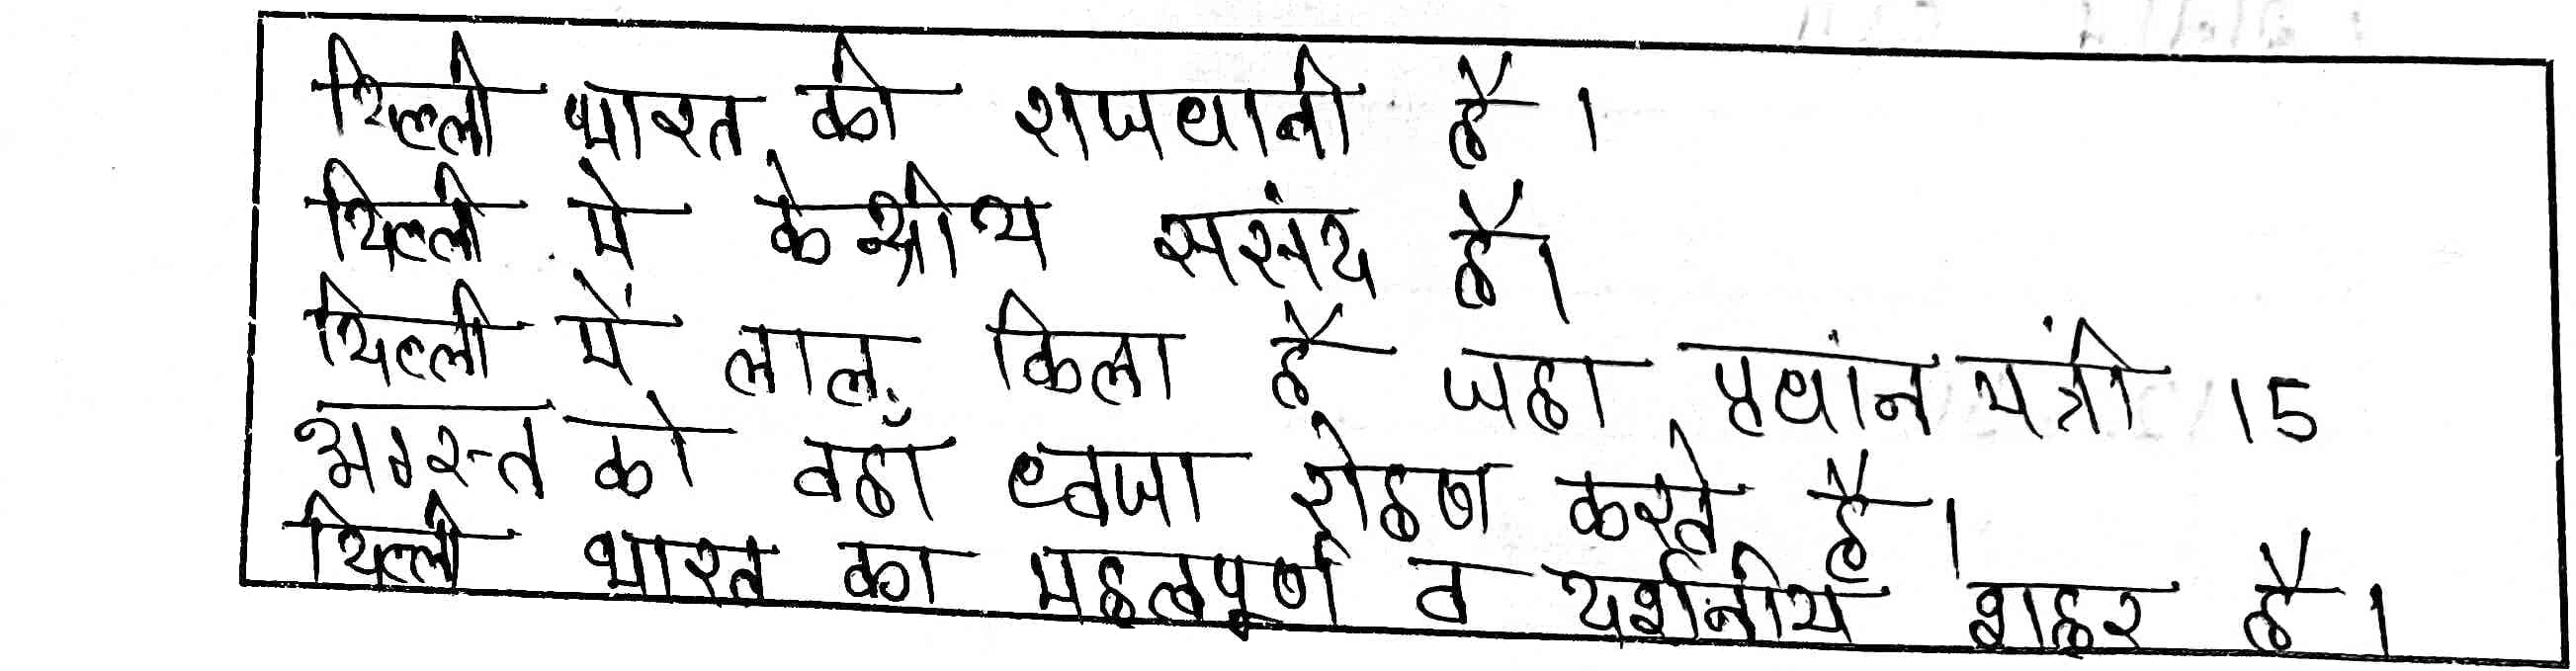 दिल्ली भारत की राजधानी है।
दिल्ली मे केन्द्रीय संसद है।
दिल्ली में लाल किला है जहा प्रधांन मंत्री 15
अगस्त को वहाँ ध्वजा रोहण करते है।
दिल्ली भारत का महत्वपूर्ण व दर्शनीय शहर है।